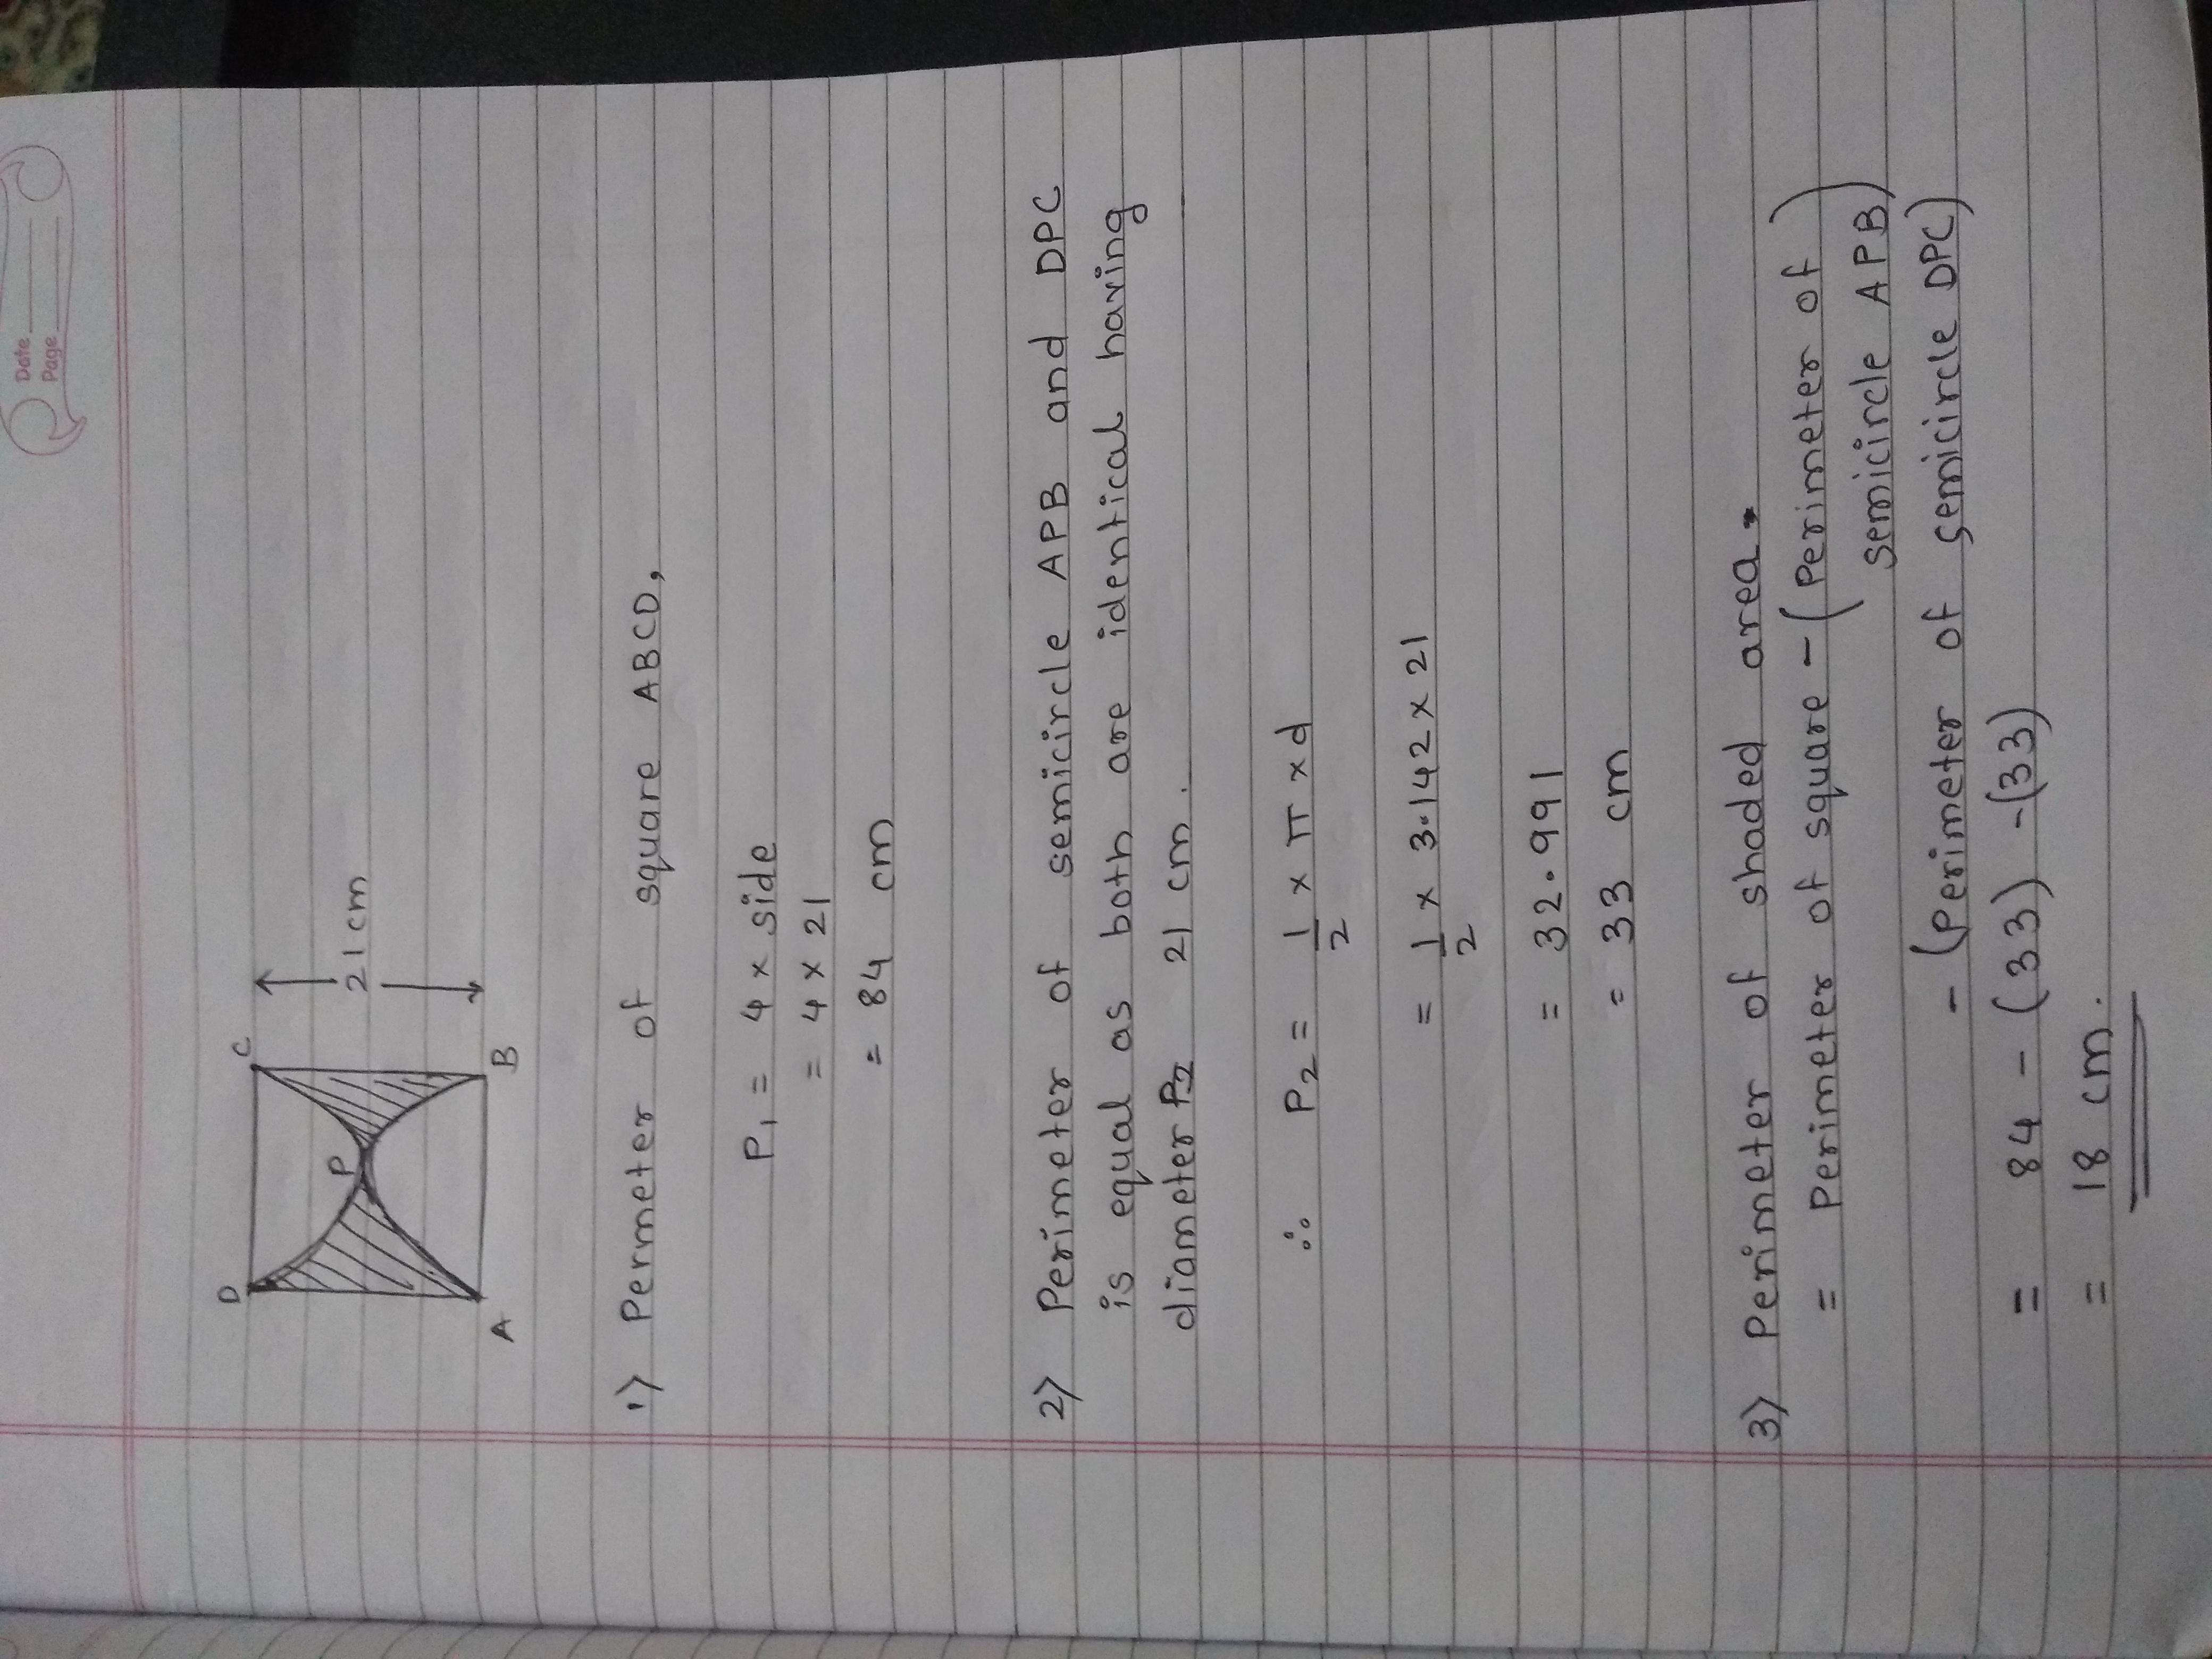 Date
Page
D
C
P
21 cm
A
B
1) Permeter of square ABCD,
P1 = 4 x side
= 4 x 21
= 84 cm
2) Perimeter of semicircle APB and DPC
is equal as both are identical having
diameter P2 21 cm.
∴ P2 = 1/2 x π x d
= 1/2 x 3.142 x 21
= 32.991
= 33 cm
3) Perimeter of shaded area.
= Perimeter of square - (Perimeter of
semicircle APB)
- (Perimeter of semicircle DPC)
= 84 - (33) - (33)
= 18 cm.